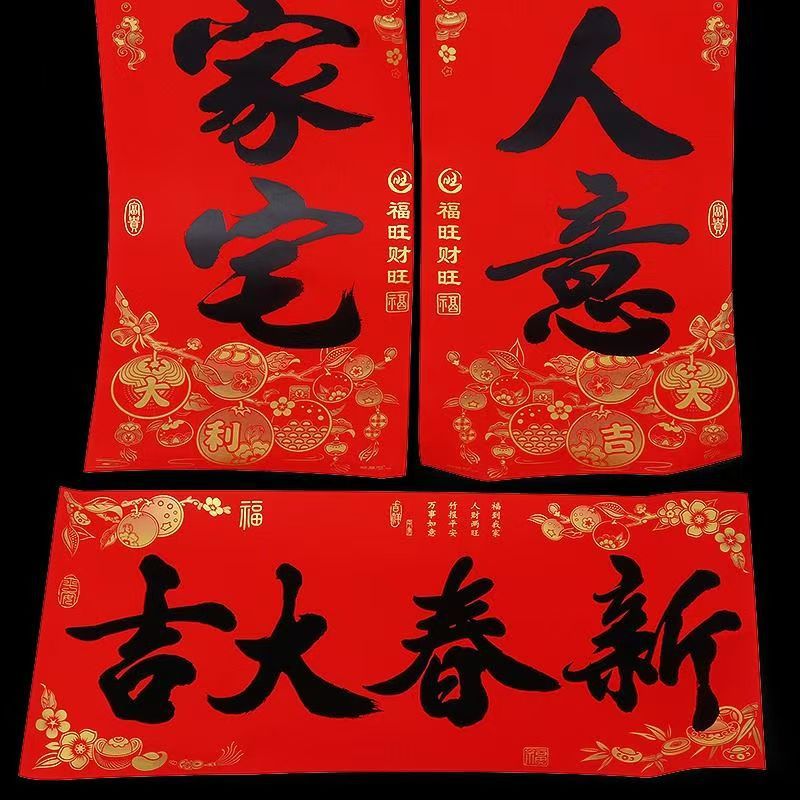 人意
旺
福旺财旺
福
富貴
大
吉
家宅
旺
福旺财旺
福
富貴
大
利
新春大吉
福到我家
人财两旺
竹报平安
万事如意
吉祥
福
福